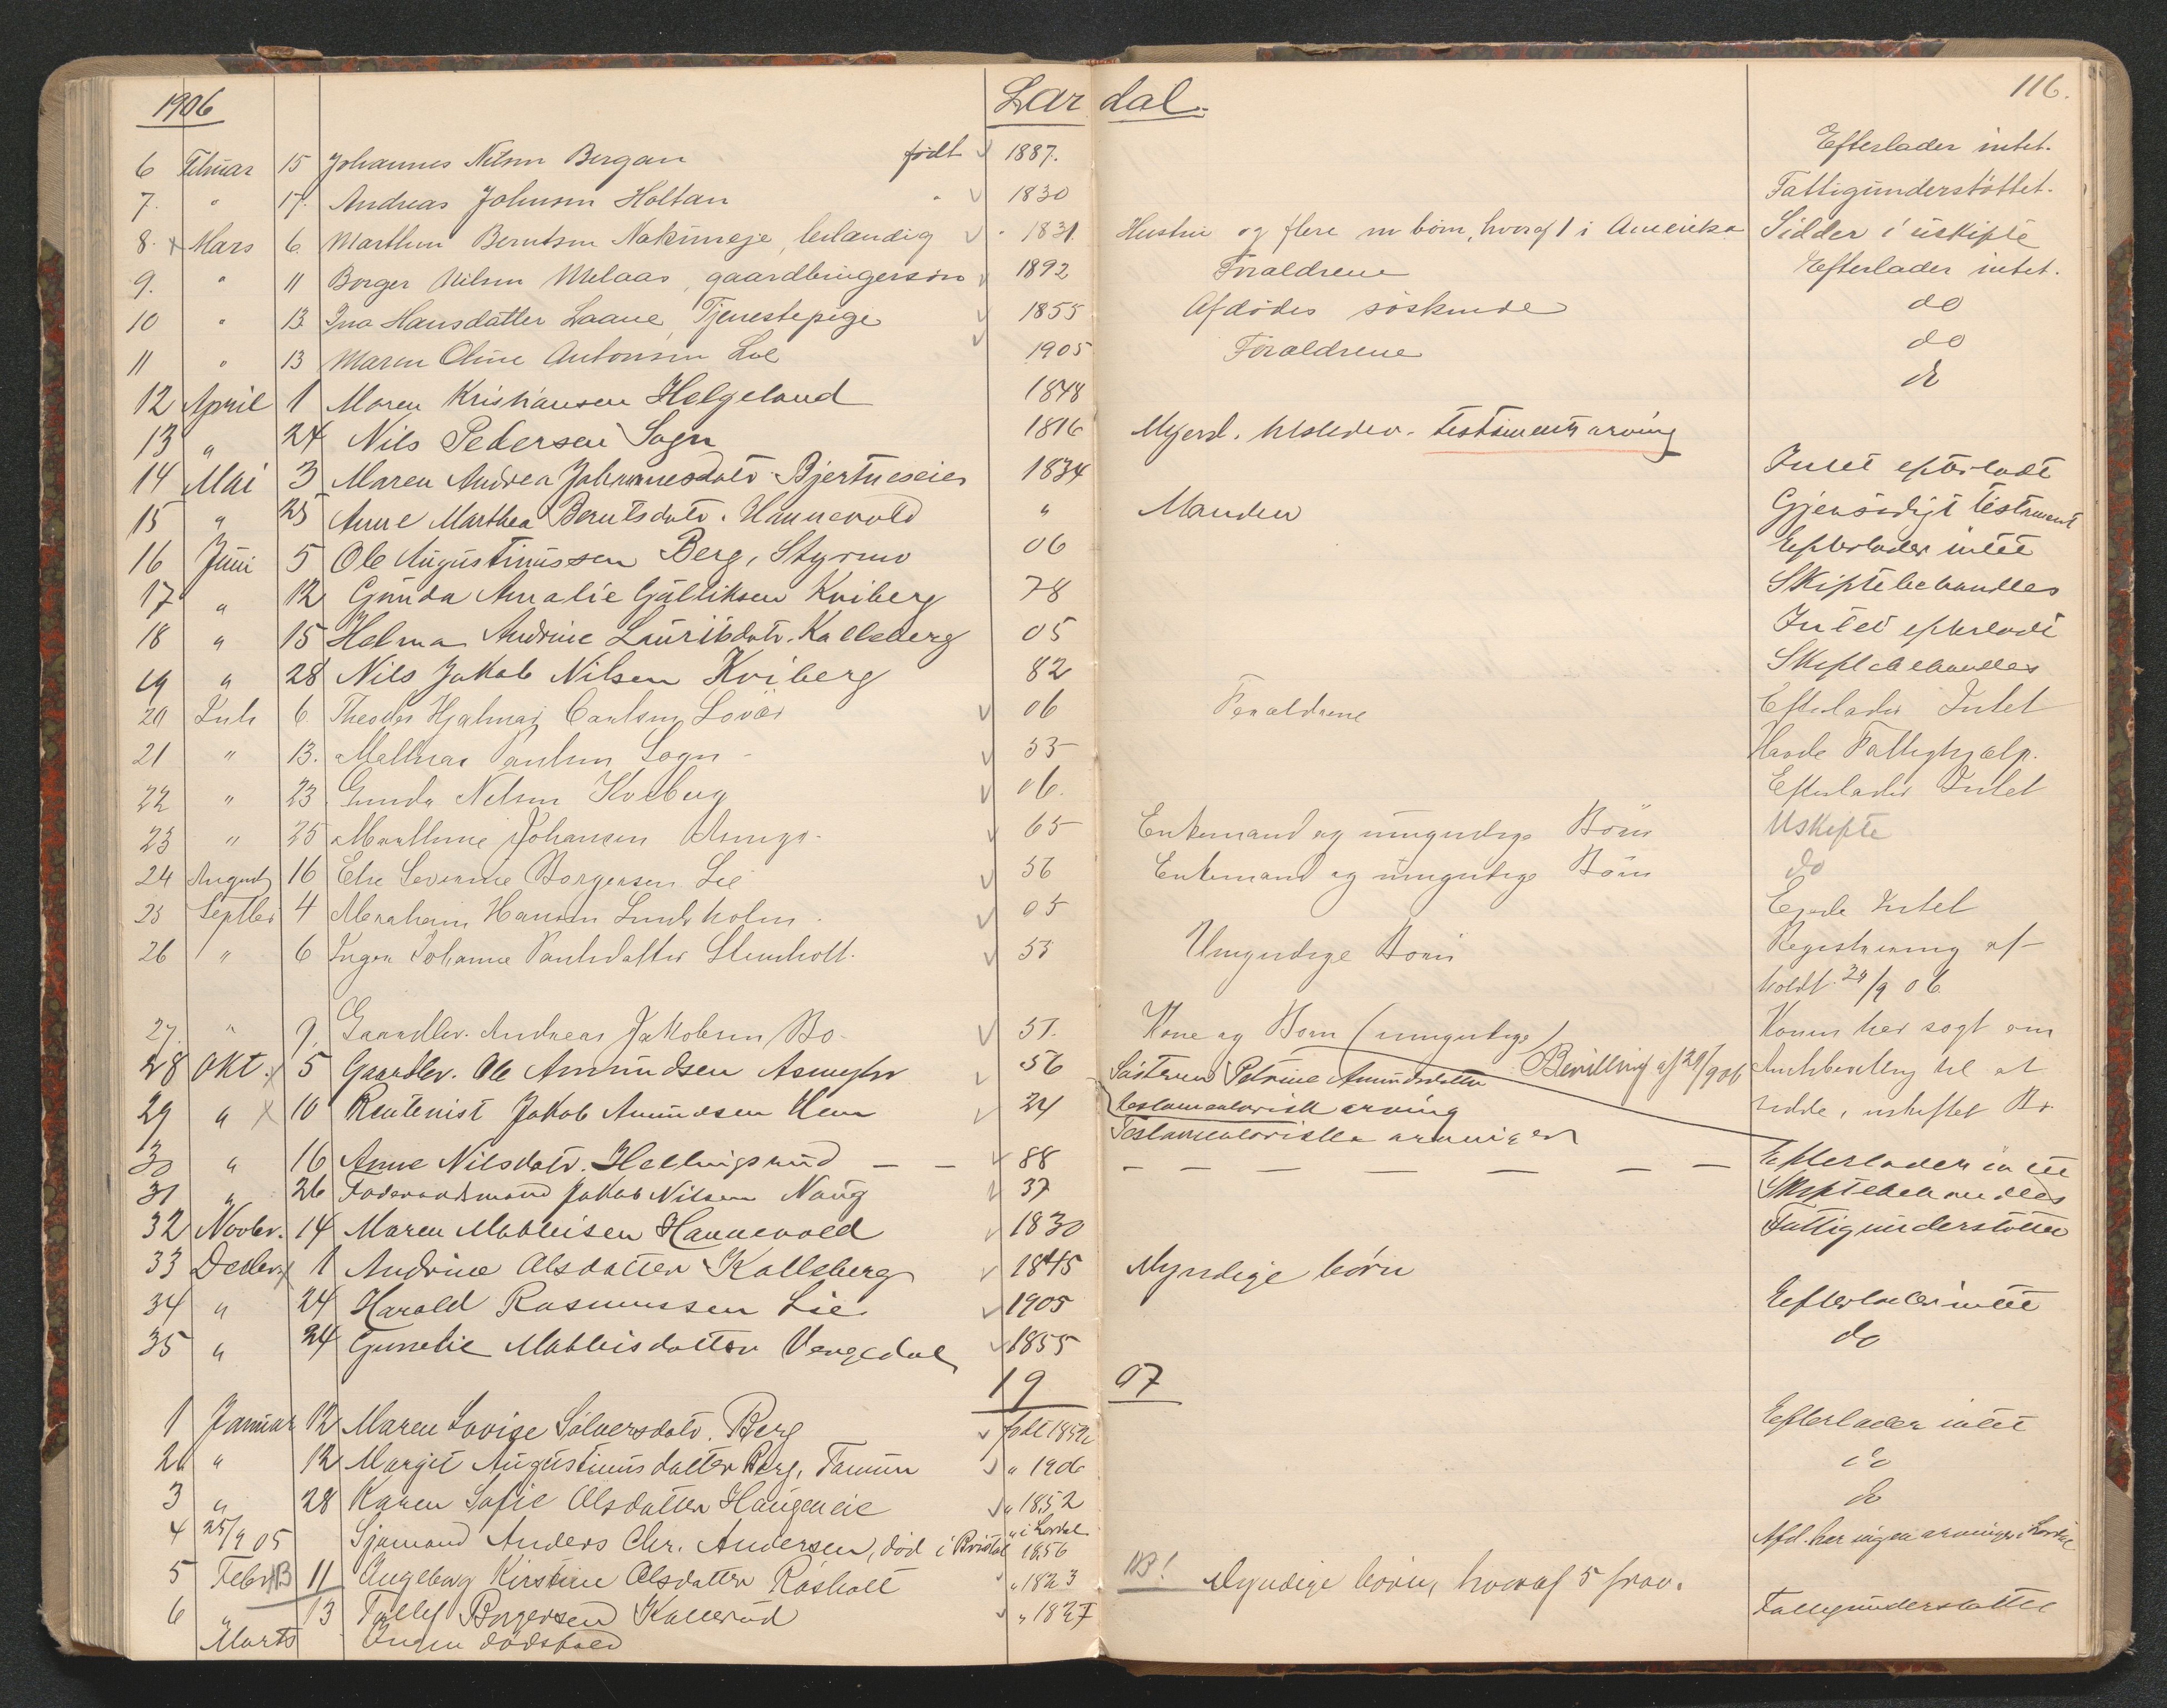 1906 Lardal. 116.
6 Februar 15 Johannes Nilsen Bergan født 1887. Efterlader intet.
7. " 17. Andreas Johnsen Holtan " 1830 Fattigunderstøttet.
8. x Mars 6. Marthin Berntsen leilændig " 1831 Hustru og flere m børn, hvoraf 1 i Amerika Sidder i uskifte
9. " 11 Borger Nilsen Melaas, gaardbrugersøn 1892 Forældrene Efterlader intet.
10 " 13 Ina Hansdatter Laane, Tjenestepige 1855 Afdødes søskende do
11 " 13 Maren Oline Antonsen Lie 1905 Forældrene do
12 April 1 Maren Kristiansen Helgeland 1848 do
13 " 24 Nils Pedersen Sogn 1816 Myend. testamentsarving
14 Mai 3 Maren Andrea Johannesdatr. 1834 Intet efterladt
15 " 25 Anne Marthea Berntsdatr. Hannevold " Manden Gjensidigt testament
16 Juni 5 Ole Augustinussen Berg, Styrmo 06 Efterlader intet
17 " 12 Gunda Amalie Gulliksen Kviberg 78 Skiftebehandles
18 " 15 Helma Andrine Lauritsdatr. Kallsberg 05 Intet efterladt
19 " 28 Nils Jakob Nilsen Kviberg 82 Skiftebehandles
20 Juli 6 Theodor Hjalmar Carlsen Lovås 06 Forældrene Efterlader Intet
21 " 13. Mathias Paulsen Sogn 53 Havde Fattighjælp.
22 " 23. Gunda Nilsen Kviberg 06. Efterlader Intet
23 " 25 Marthine Johansen 65 Enkemand og umyndige Børn Uskifte
24 August 16 Else Severine Borgersen Lie 56 Enkemand og umyndige Børn do
25 Septbr 4 Abraham Hansen Lindholm. 05 Eiede Intet
26 " 6 Inger Johanne Paulsdatter Stenholt. 53 Umyndige Børn Registrering af-
holdt 24/9 06
27. " 9. Gaardbr. Andreas Jakobsen Bø. 51. Kone og Børn (umyndige) Konen har søgt om
28 Okt. x 5 Gaardbr. Ole Amundsen 56 Søsteren Petrine Amundsdatter Bevilling af 29/9 06 til at
29 " x 10 Rentenist Jakob Amundsen Hem 24 testamentarisk arving sidde i uskiftet Bo.
Testamentariske arvinger
30 " 16 Anne Nilsdatr. Hellingsrud – – 88 – – – – – – – Efterlader intet
31 " 26 Føderaadsmand Jakob Nilsen Naug 37 Skiftebehandles
32 Novbr. 14 Maren Mathisen Hannevold 1830 Fattigunderstøttet
33 Decbr. x 1 Andrine Olsdatter Kallsberg 1845 Myndige børn
34 " 24 Harald Rasmussen Lie 1905 Efterlader intet
35 " 24 Gunelie Mathisdatter Vengedal 1855 do
1907
1 Januar 12 Maren Lovise Sølversdatr. Berg født 1852 Efterlader intet
2 " 12 Margit Augustinusdatter Berg, Tamun " 1906 do
3 " 28 Karen Sofie Olsdatter Haugeneie " 1852 do
4 25/9 05 Sjømand Anders Chr. Andersen, død i Bristol " i Lardal 1856 Afd. har ingen arvinger i Lardal
5 Febr. 11 Ingeborg Kirstine Olsdatter Røsholt " 1823 NB! Myndige børn, hvoraf 5 frav.
6 " 13 Tollef Borgersen Kallerød " 1827 Fattigunderstøttet
Marts Ingen dødsfald